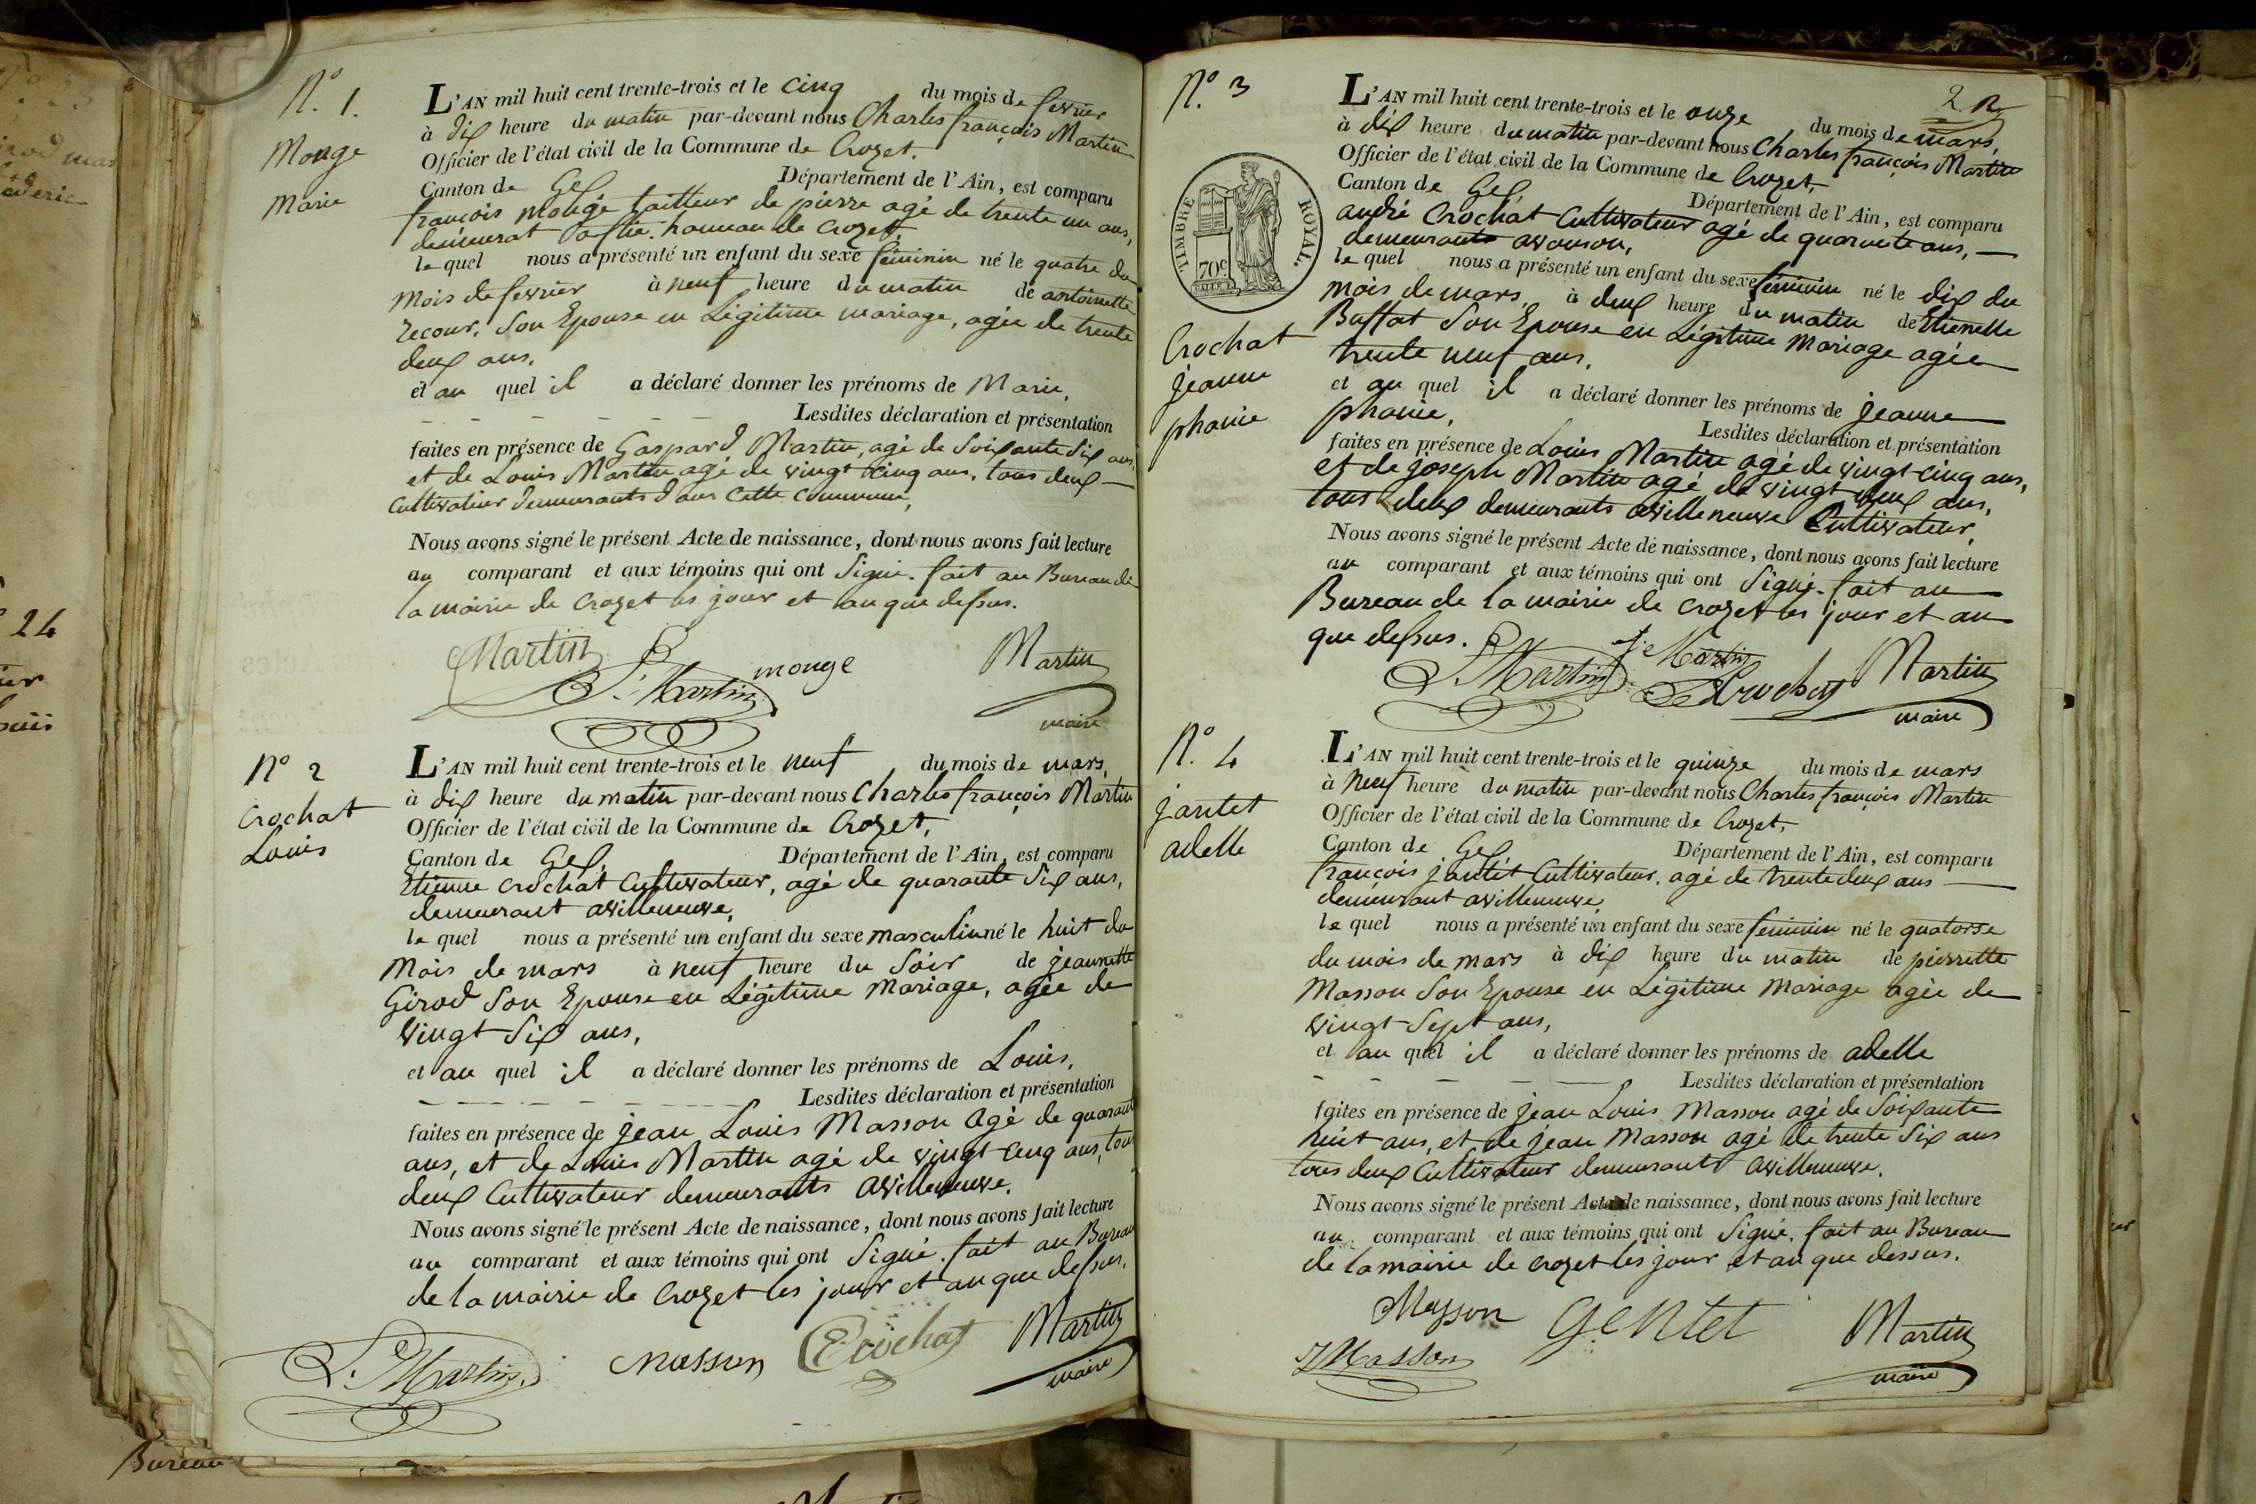 N.° 1.
Monge
Marie
L'AN mil huit cent trente-trois et le cinq du mois de fevrier
à dix heure du matin par-devant nous Charles françois Martin
Officier de l'état civil de la Commune de Crozet.
Canton de Gex, Département de l'Ain, est comparu
françois monge tailleur de pierre agé de trente un ans,
demeurat hameau de crozet,
le quel nous a présenté un enfant du sexe féminin né le quatre du
mois de fevrier à neuf heure du matin de antoinette
recour, Son Epouse en Légitime mariage, agée de trente
deux ans.
et au quel il a déclaré donner les prénoms de Marie,
Lesdites déclaration et présentation
faites en présence de Gaspard Martin, agé de Soixante Six ans,
et de Louis Martin agé de vingt cinq ans, tous deux
Cultivateur demeurants dans cette commune,
Nous avons signé le présent Acte de naissance, dont nous avons fait lecture
au comparant et aux témoins qui ont Signé. fait au Bureau de
la mairie de crozet les jour et an que dessus.
Martin L. Martin monge Martin
maire
N° 2
Crochat
Louis
L'AN mil huit cent trente-trois et le neuf du mois de mars,
à dix heure du matin par-devant nous Charles françois Martin
Officier de l'état civil de la Commune de Crozet,
Canton de Gex, Département de l'Ain, est comparu
Etienne crochat Cultivateur, agé de quarante Six ans,
demeurant avilleneuve,
le quel nous a présenté un enfant du sexe masculin né le huit du
Mois de mars à neuf heure du Soir de jeannette
Girod Son Epouse en Légitime Mariage, agée de
vingt Six ans,
et au quel il a déclaré donner les prénoms de Louis,
Lesdites déclaration et présentation
faites en présence de jean Louis Masson agé de quarante
ans, et de Louis Martin agé de vingt cinq ans, tous
deux Cultivateur demeurants avilleneuve.
Nous avons signé le présent Acte de naissance, dont nous avons fait lecture
au comparant et aux témoins qui ont Signé. fait au Bureau
de la mairie de Crozet les jour et an que dessus.
L. Martin masson E Crochat Martin
maire
2
N.° 3
TIMBRE ROYAL.
70c
Crochat
jeanne
phanie
L'AN mil huit cent trente-trois et le onze du mois de mars,
à dix heure du matin par-devant nous Charles françois Martin
Officier de l'état civil de la Commune de Crozet,
Canton de Gex, Département de l'Ain, est comparu
andré Crochat Cultivateur agé de quarante ans,
demeurants avouson,
le quel nous a présenté un enfant du sexe féminin né le dix du
mois de mars, à deux heure du matin de Etienette
Buffat Son Epouse en Légitime Mariage agée
trente neuf ans,
et au quel il a déclaré donner les prénoms de jeanne
phanie,
Lesdites déclaration et présentation
faites en présence de Louis Martin agé de vingt cinq ans,
et de joseph Martin agé de vingt deux ans,
tous deux demeurants avilleneuve Cultivateur,
Nous avons signé le présent Acte de naissance, dont nous avons fait lecture
au comparant et aux témoins qui ont Signé. fait au
Bureau de la mairie de crozet les jour et an
que dessus.
L. Martin J. Martin Crochat Martin
maire
N.° 4
jantet
adelle
L'AN mil huit cent trente-trois et le quinze du mois de mars
à Neuf heure du matin par-devant nous Charles françois Martin
Officier de l'état civil de la Commune de Crozet,
Canton de Gex Département de l'Ain, est comparu
françois jantet Cultivateur, agé de trente deux ans
demeurant avilleneuve,
le quel nous a présenté un enfant du sexe féminin né le quatorse
du mois de mars à dix heure du matin de pierrette
Masson Son Epouse en Légitime Mariage agée de
vingt Sept ans,
et au quel il a déclaré donner les prénoms de adelle
Lesdites déclaration et présentation
faites en présence de jean Louis Masson agé de Soixante
huit ans, et de jean Masson agé de trente Six ans
tous deux Cultivateur demeurants avilleneuve.
Nous avons signé le présent Acte de naissance, dont nous avons fait lecture
au comparant et aux témoins qui ont Signé. fait au Bureau
de la mairie de crozet les jour et an que dessus.
Masson Gentet Martin
J Masson maire
24
Bureau